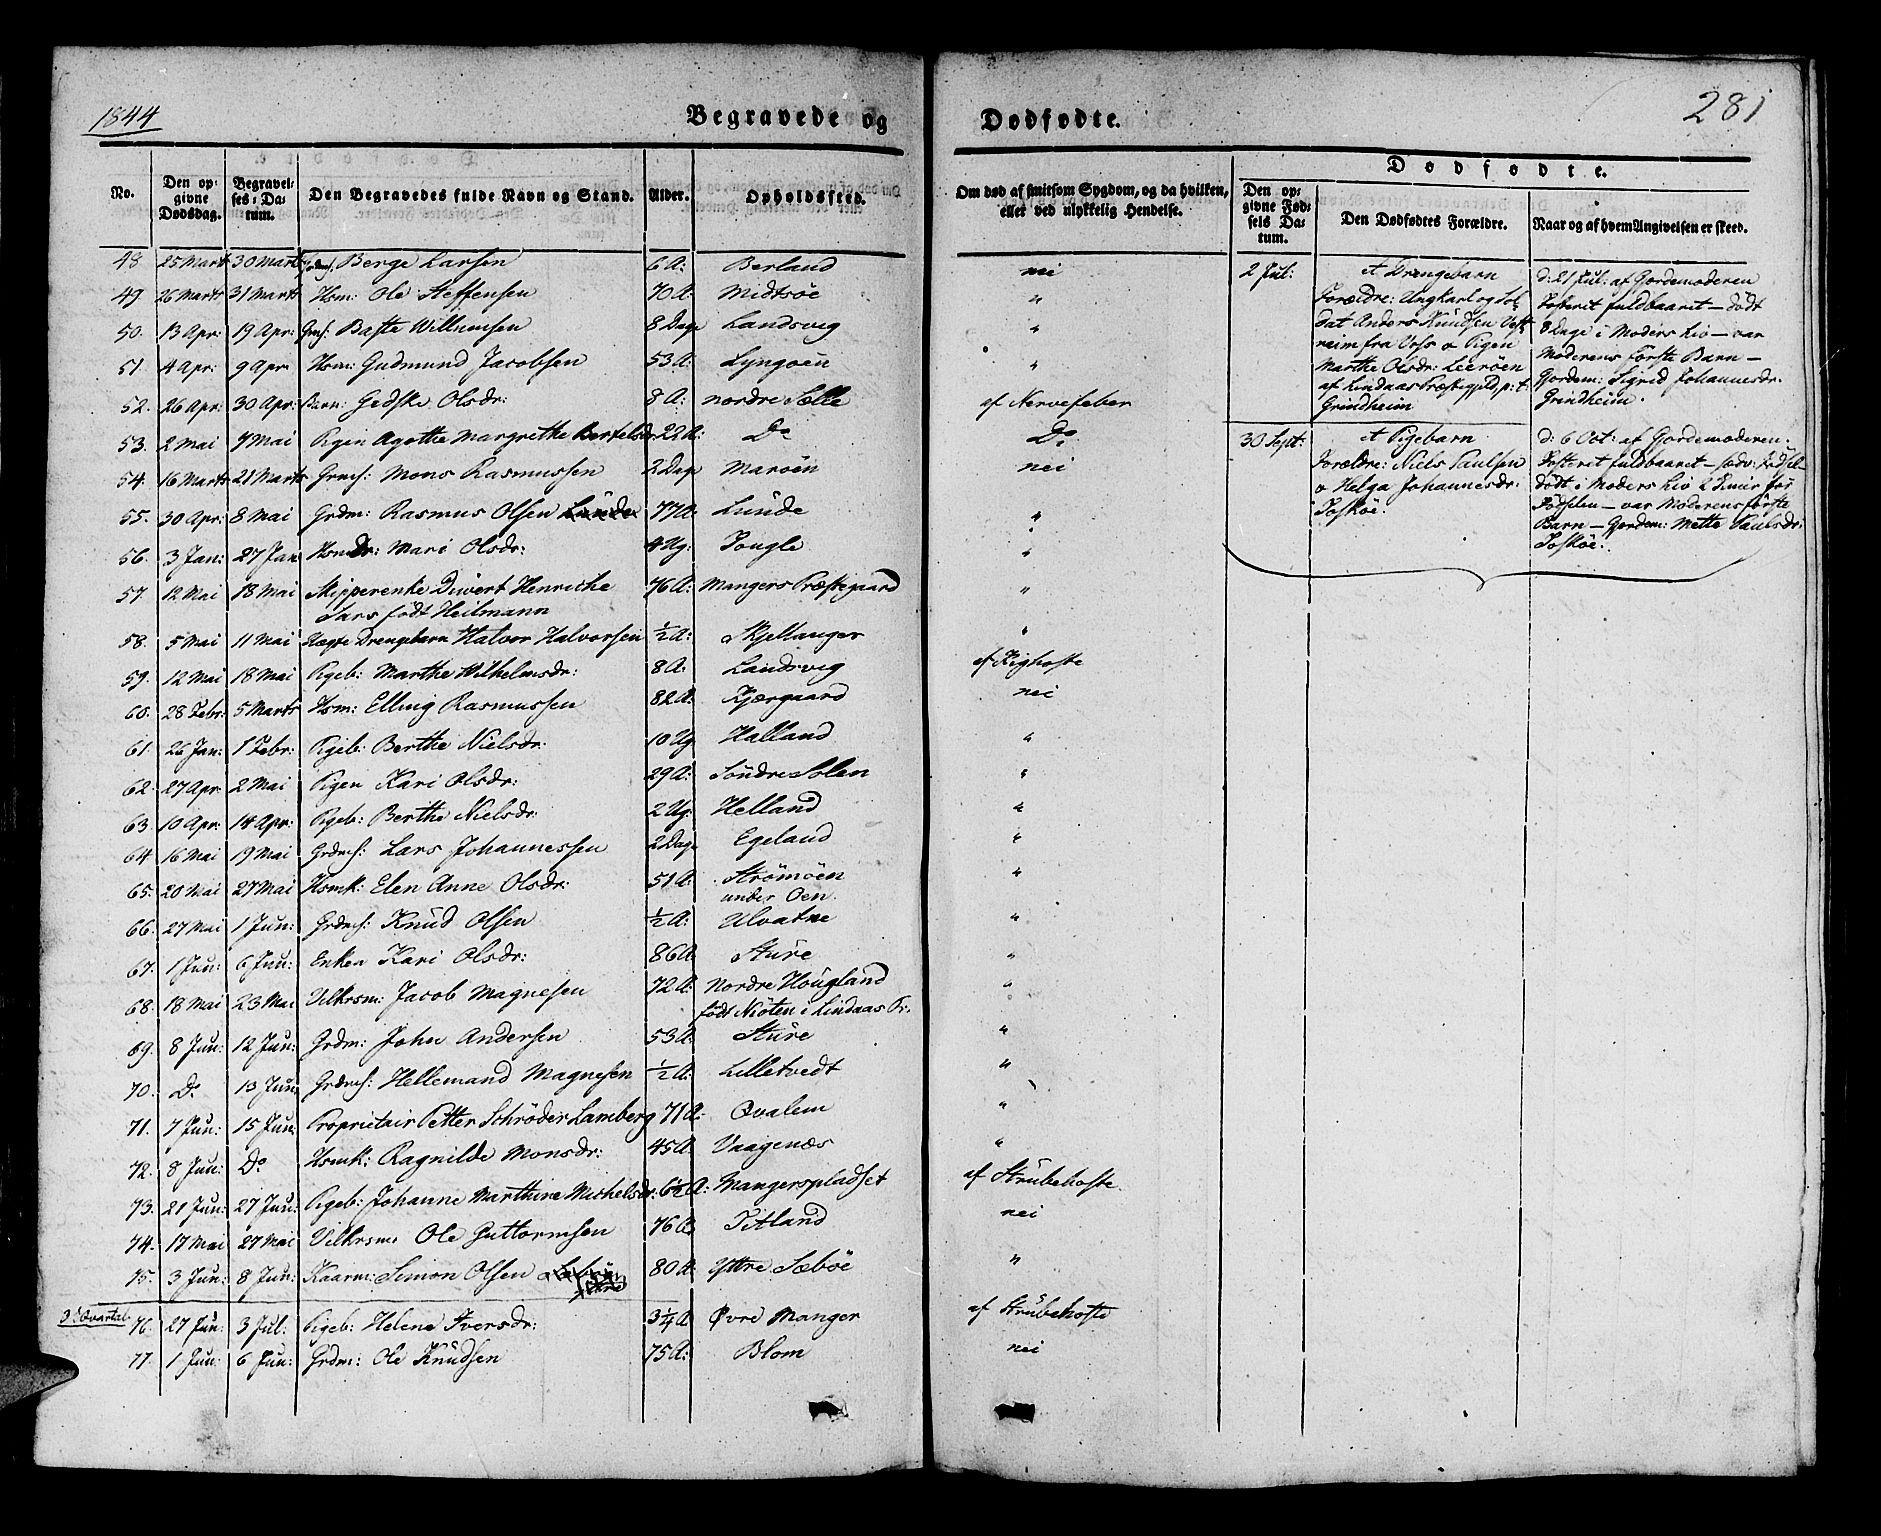 1844
Begravede og Dødfødte.
281
No.
Den opgivne Dødsdag.
Begravelses-Datum.
Den Begravedes fulde Navn og Stand.
Alder.
Opholdssted.
Om død af smitsom Sygdom, og da hvilken, eller ved ulykkelig Hendelse.
Dødfødte.
Den opgivne Fødsels Datum.
Den Dødfødtes Forældre.
Naar og af hvem Angivelsen er skeed.
48 25 Marts 30 Marts Grdms: Berge Larsen 6 A: Berland nei
49. 26 Marts 31 Marts Hsm: Ole Steffensen 70 A: Midtsøe "
50. 13 Apr: 19 Apr: Grms: Baste Willumsen 8 Dage Landsvig "
51. 4 Apr: 9 Apr: Hsm: Gudmund Jacobsen 53 A: Lyngøen "
52. 26 Apr: 30 Apr: Barn: Gedske Olsdr: 8 A: nordre Sælle af Nervefeber
53. 2 Mai 7 Mai Pigen Agothe Margrethe Bertelsdr: 22 A: Do Do
54. 16 Marts 21 Marts Grms: Mons Rasmussen 2 Dage Marøen nei
55. 30 Apr: 8 Mai Grdm: Rasmus Olsen 77 A: Lunde "
56. 3 Jan: 27 Jan: Hsmdr: Mari Olsdr: 4 Ug: Tougle "
57. 12 Mai 18 Mai Skipperenke Divert Henriche 76 A: Mangers Præstegaard "
Lars født Heilmann
58. 5 Mai 11 Mai Uægte Drengebarn Halvor Halvorsen ½ A: Skjellanger "
59. 12 Mai 18 Mai Pigeb: Marthe Wilhelmsdr: 8 A: Landsvig af Kighoste
60. 28 Febr: 5 Marts Hsm: Elling Rasmussen 82 A: Kjærgaard nei
61. 26 Jan: 1 Febr: Pigeb: Berthe Nielsdr: 10 Ug Halland "
62. 27 Apr 2 Mai Pigen Kari Olsdr: 29 A: Søndre Solen "
63. 10 Apr: 14 Apr: Pigeb: Berthe Nielsdr: 2 Ug: Helland "
64 16 Mai 19 Mai Grdms: Lars Johannessen 2 Dage Egeland "
65. 20 Mai 27 Mai Hsmk: Elen Anne Olsdr: 51 A: Strømøen "
under Oen.
66. 27 Mai 1 Jun: Grdms: Knud Olsen ½ A: Ulvatne "
67. 1 Jun: 6 Jun: Enken Kari Olsdr: 86 A Sture "
68. 18 Mai 23 Mai Vilkrsm: Jacob Magnesen 72 A: Nordre Hougland "
født Nioten i Lindaas Pr.
69. 8 Jun: 12 Jun: Grdm: John Andersen 53 A: Sture "
70. Do 13 Jun: Grdms: Hellemand Magnesen ½ A: Lilletvedt "
71. 7 Jun: 15 Jun: Proprietair Petter Schrøder Lamberg 71 A: Qvalem "
72. 8 Jun: Do Hsmk: Ragnilde Monsdr: 45 A: Vaagenæs "
73. 21 Jun: 27 Jun: Pigeb: Johanne Marthine Michelsdr: 6½ A: Mangerspladset af Strubehoste
74. 17 Mai 27 Mai Vilkrsm: Ole Guttormsen 76 A Titland nei
75. 3 Jun: 8 Jun: Kaarm: Simon Olsen 80 A: Yttre Sæbøe "
3die Qvartal 76. 27 Jun: 3 Jul: Pigeb: Helene Iversdr: 3¼ A Øvre Manger af Strubehoste
77. 1 Jun: 6 Jun: Grdm: Ole Knudsen 75 A: Blom nei
2 Jul: et Drengebarn
Forældre: Ungkarl og Sol-
dat Anders Knudsen Vest-
reim fra Voss o Pigen
Marthe Olsdr: Leerøen
af Lindaas Præstegjeld, p: t:
Grindheim
d: 21 Jul: af Gordemoderen
Fosteret fuldbaaret – dødt
8 Dage i Moders Liv – var
Moderens første Barn –
Gjordem: Sigrid Johannesdr.
Grindheim.
30 Sept: et Pigebarn
Forældre: Niels Paulsen
o Helga Johannesdr:
Toskøe.
d: 6 Oct: af Gordemoderen.
Fosteret fuldbaaret – sædv: Fødsel –
dødt i Moders Liv 2 Timer før
Fødselen – var Moderens første
Barn – Gjordem: Mette Paulsdr:
Toskøe.